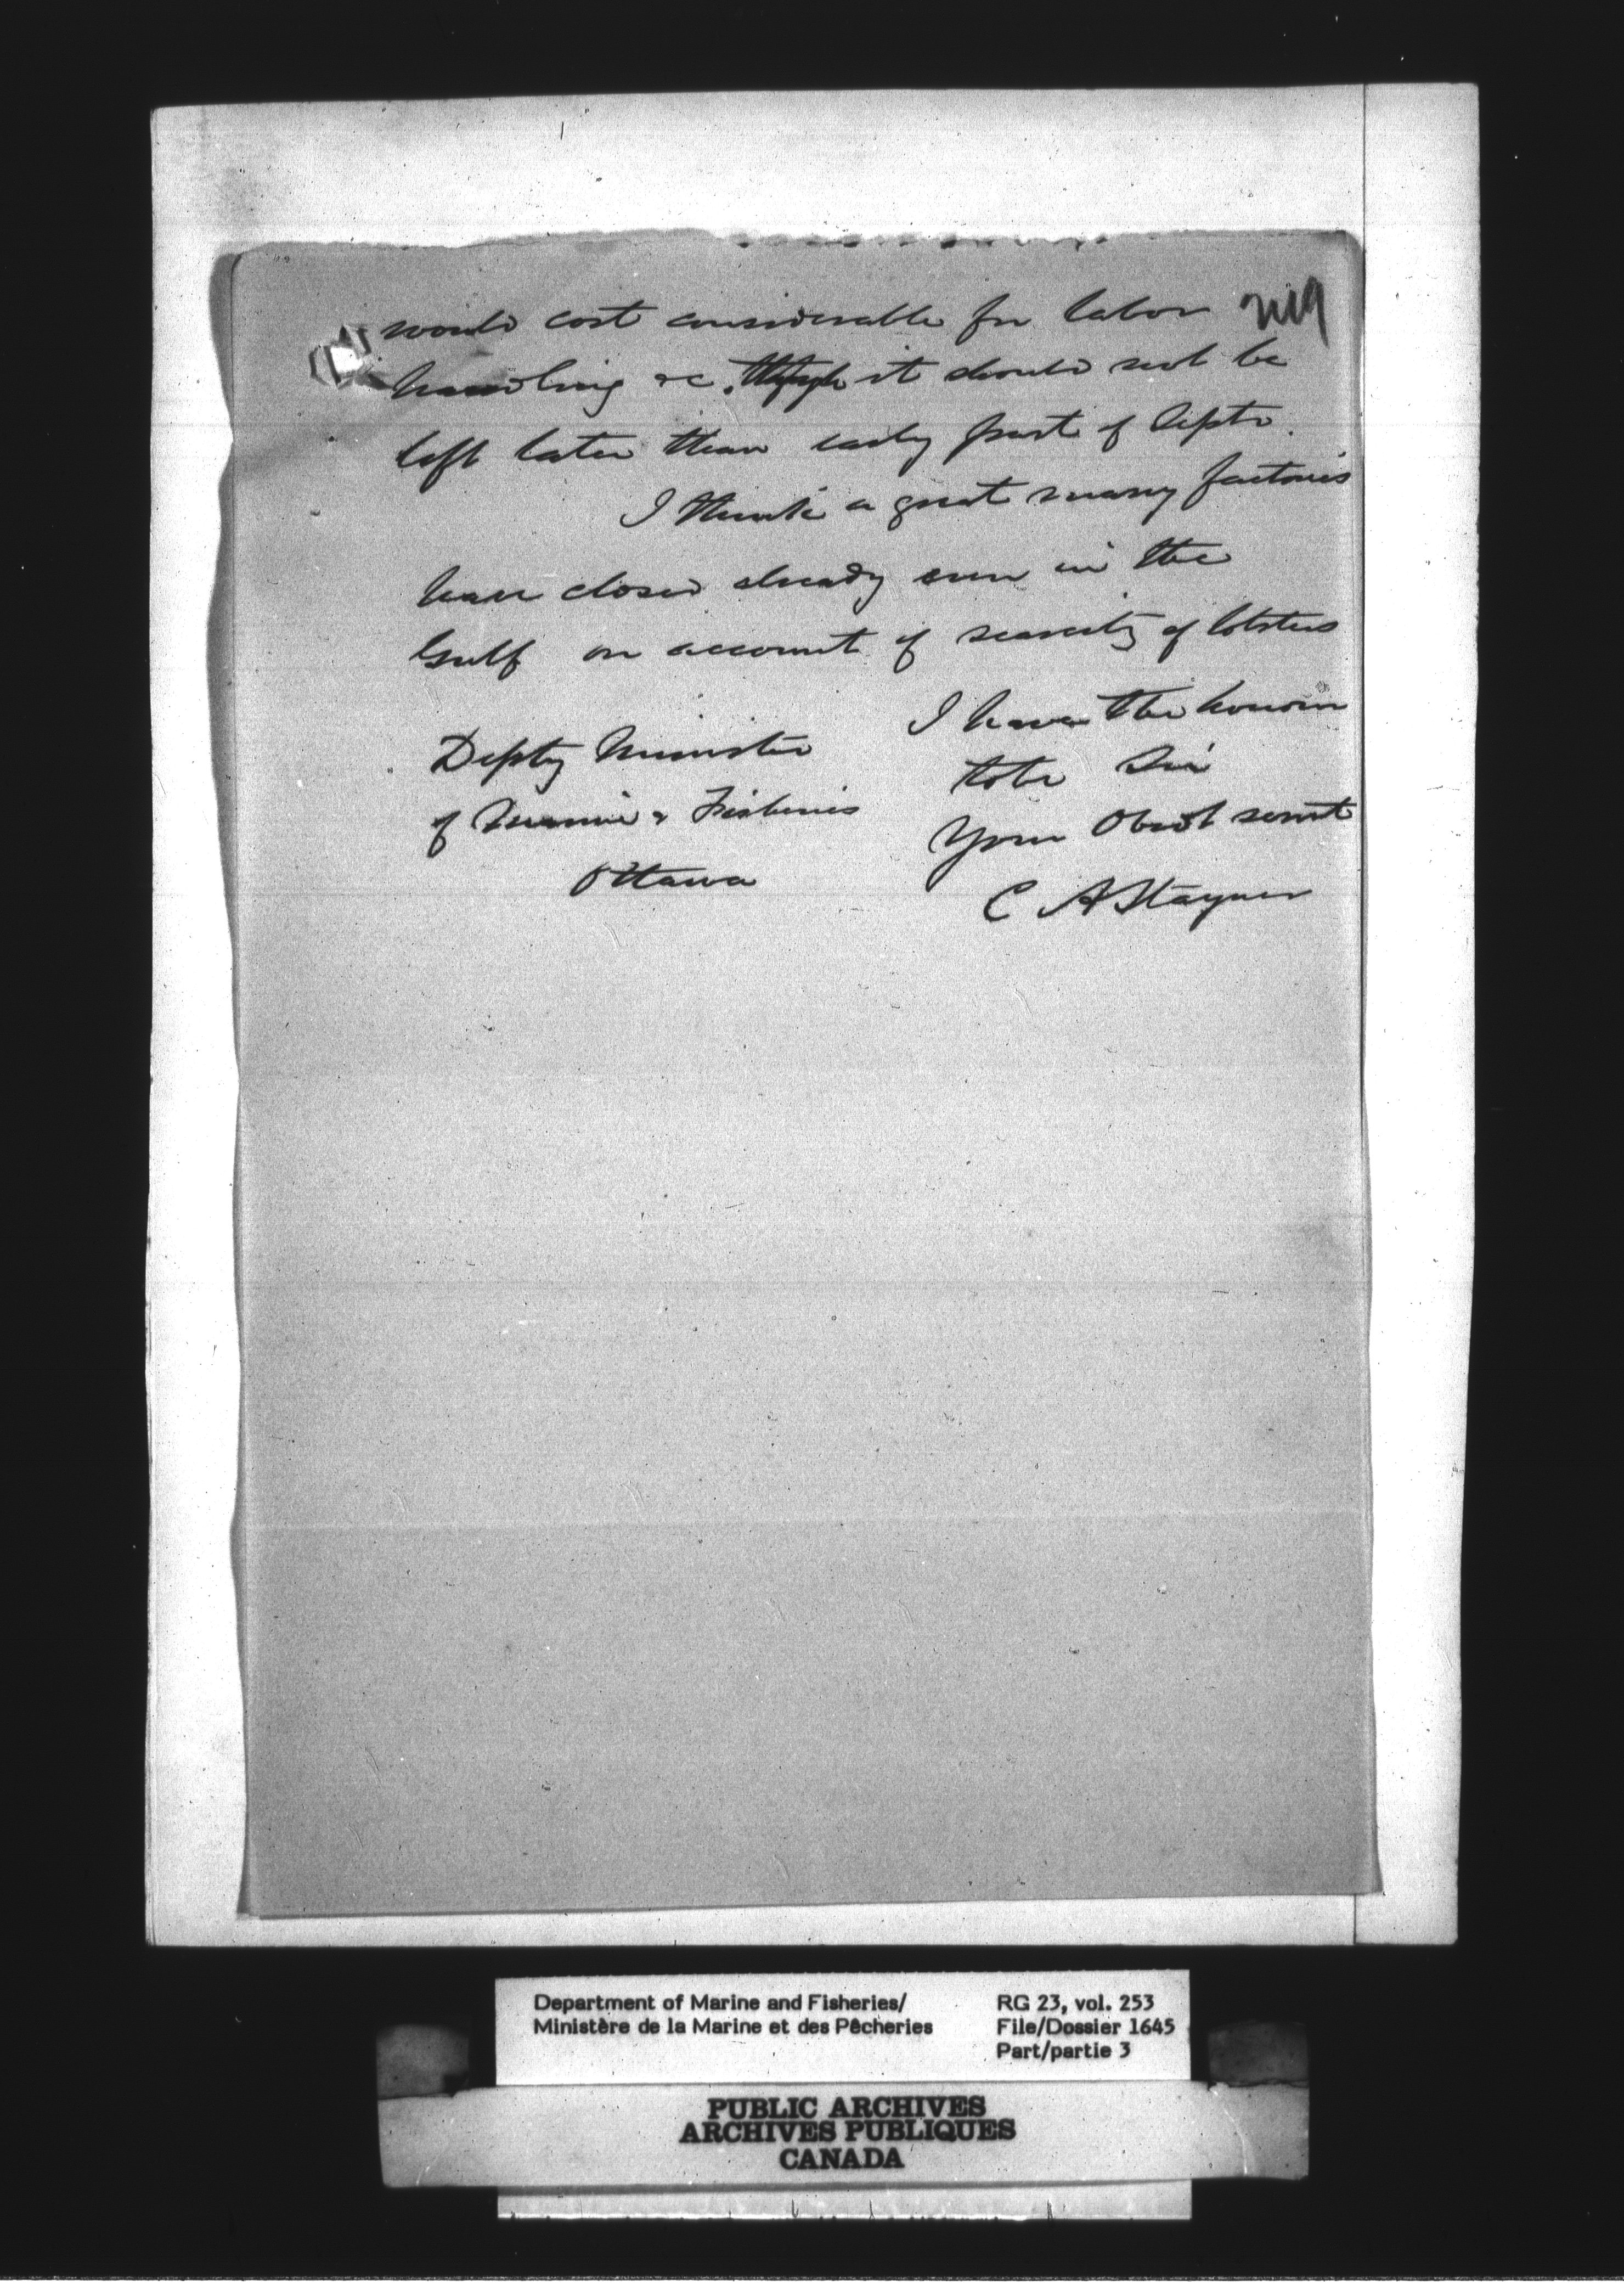 219
would cost considerable for labor
handling &c. though it should not be
left later than early part of Septr.
I think a great many factories
have closed already even in the
Gulf on account of scarcity of lobsters
I have the honour
to be Sir
Your Obedt servt
C A Stayner
Depty Minister
of Marine & Fisheries
Ottawa
Department of Marine and Fisheries/
Ministère de la Marine et des Pêcheries
RG 23, vol. 253
File/Dossier 1645
Part/partie 3
PUBLIC ARCHIVES
ARCHIVES PUBLIQUES
CANADA